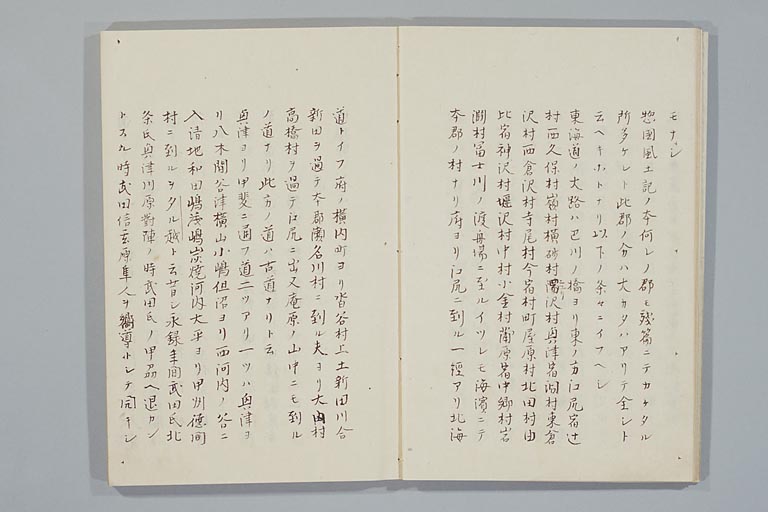 モナシ
惣国風土記ノ本何レノ郡モ残篇ニテカケタル
所多ケレト此郡ノ分ハ大カタハアリテ全シト
云ヘキホトナリ以下ノ条々ニイフヘシ
東海道ノ大路ハ巴川ノ橋ヨリ東ノ方江尻宿辻
村西久保村嶺村横砂村 沢村興津宿洞村東倉
沢村西倉沢村寺尾村今宿村町屋原村北田村由
比宿神沢村堰沢村中村小金村蒲原宿中郷村岩
淵村冨士川ノ渡舟場ニ至ルイツレモ海濱ニテ
本郡ノ村ナリ府ヨリ江尻ニ到ル一徑アリ北海
道トイフ府ノ横内町ヨリ沓谷村上土新田川合
新田ヲ過テ本郡瀬名川村ニ到ル夫ヨリ大内村
高橋村ヲ過テ江尻ニ出又庵原ノ山中ニモ到ル
ノ道ナリ此方ノ道ハ古道ナリト云
興津ヨリ甲斐ニ通フ道二ツアリ一ツハ興津ヨ
リ八木間谷津横山小嶋但沼ヨリ西河内ノ谷ニ
入清地和田嶋茂嶋炭焼河内大平ヨリ甲州徳間
村ニ到ルヲタル越ト云昔シ永録年間武田氏北
条氏興津川原對陣ノ時武田氏ノ甲州ヘ退カン
トスル時武田信玄原隼人ヲ嚮導トシテ同キシ